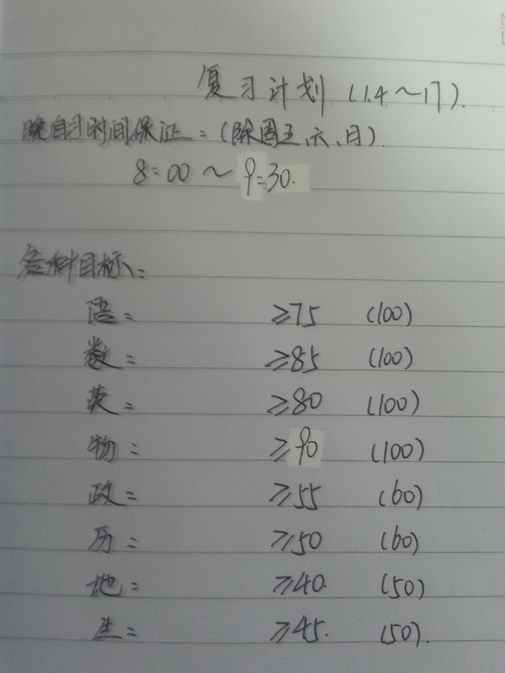 复习计划 (1.4～17).
晚自习时间保证：(除周五、六、日)
8:00～9:30.
各科目标：
语： ≥75 (100)
数： ≥85 (100)
英： ≥80 (100)
物： ≥90 (100)
政： ≥55 (60)
历： ≥50 (60)
地： ≥40. (50)
生： ≥45. (50).